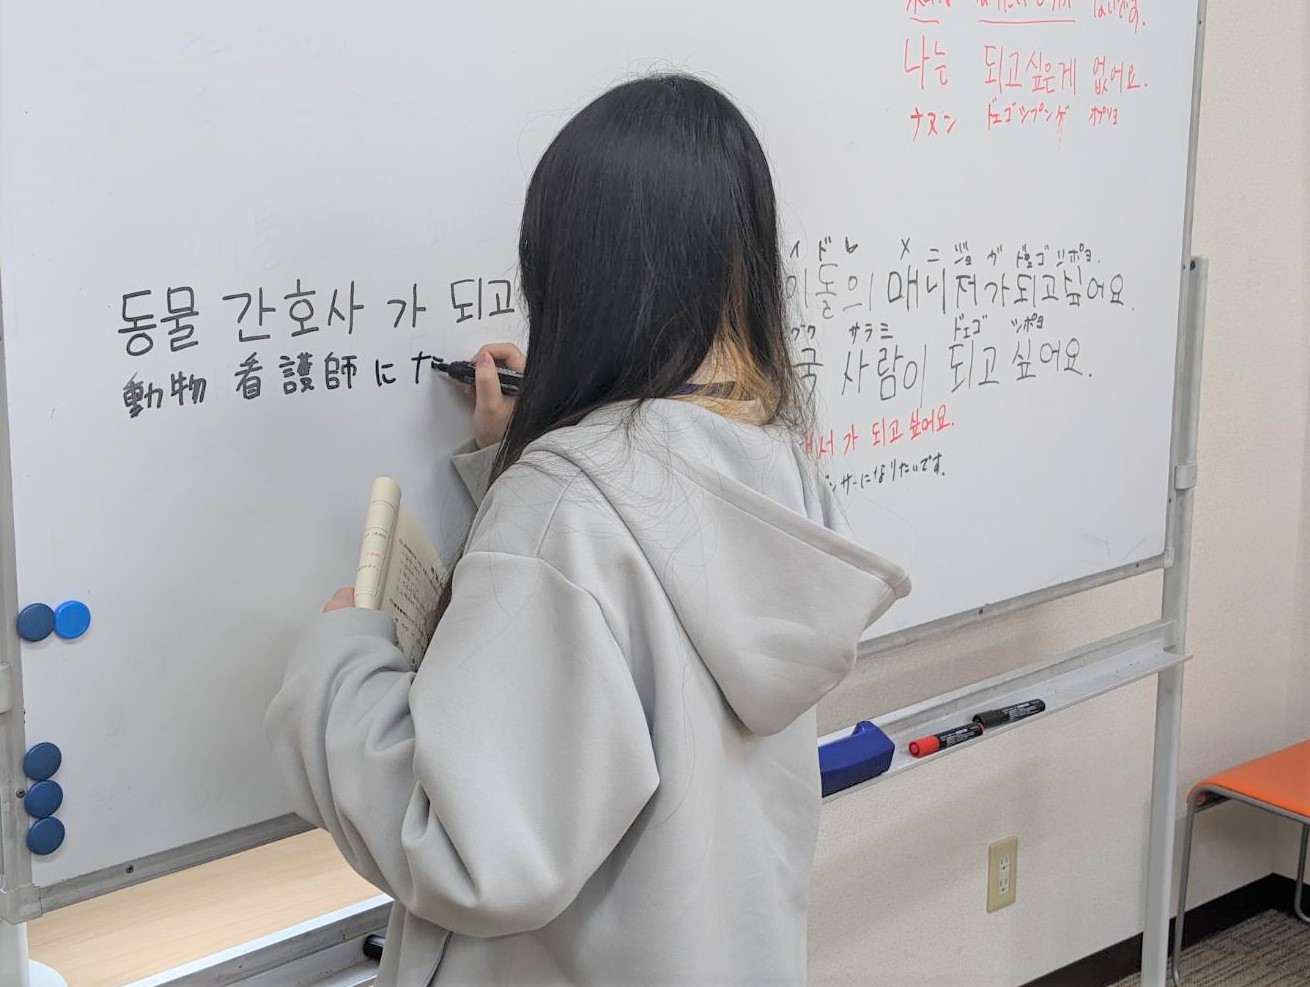 動物 看護師 に
동물 간호사 가 되고
나는 되고싶은게 없어요.
ナヌン ドェゴシプンゲ オプソヨ
イドル メニジョ ガ ドェゴ シポヨ.
이돌의 매니저가되고싶어요.
サラミ ドェゴ シポヨ
사람이 되고 싶어요.
서가 되고싶어요.
ンサーになりたいです.